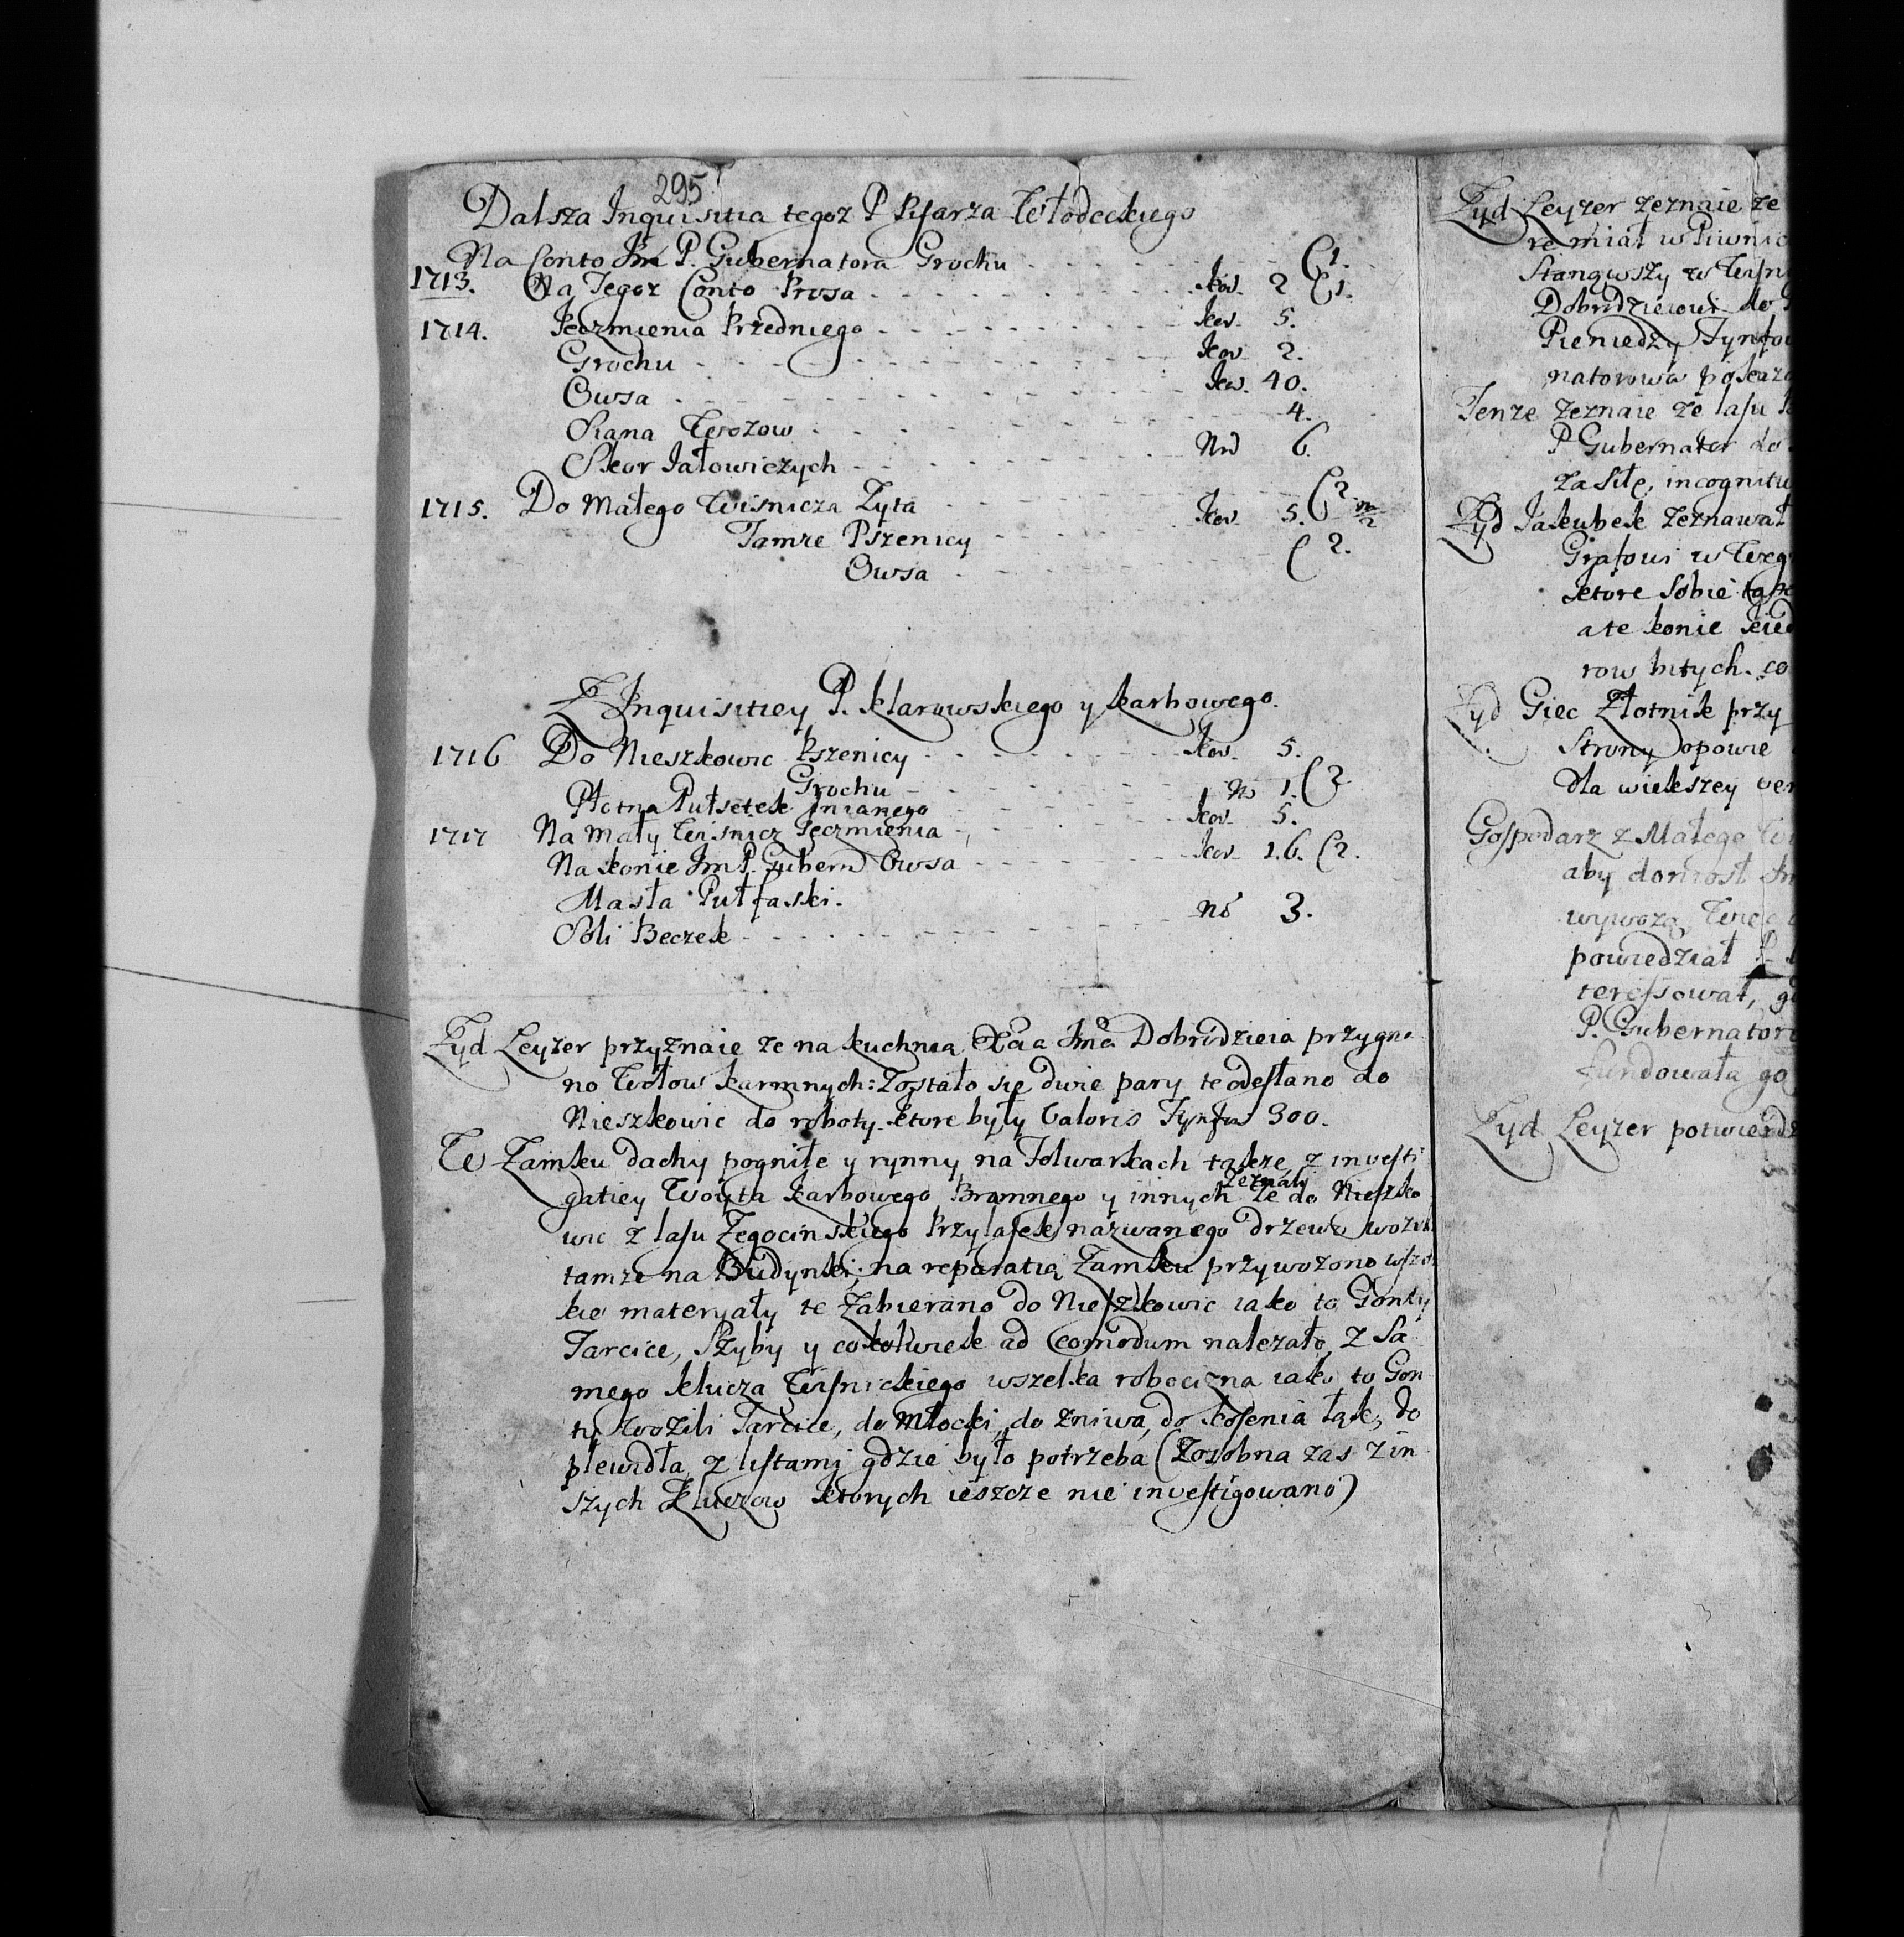 295
Dalsza Inquisitia tegoz P Pisarza Włodeckiego
Na Conto Jm P. Gubernatora Grochu C1.
1713. Na Tegoz Conto Prosa kor. 2 C1.
1714. Jęczmienia Przedniego kor. 5.
Grochu kor. 2.
Owsa kor. 40.
Siana Wozow 4.
Skor Jałowiczych Nro 6.
1715. Do Małego Wisnicza Zyta C2
Tamze Pszenicy kor. 5.
Owsa C2.
Z Inquisitiey P. Klarowskiego y karbowego.
1716 Do Nieszkowic Pszenicy kor. 5.
Grochu C2
Płotna Pułsetek lnianego No 1.
1717 Na Mały Wisnicz Jęczmienia kor. 5.
Na konie Jm P. Gubern Owsa kor. 16. C2.
Masła Puł faski.
Soli Beczek No 3.
Zyd Leyzer przyznaie ze na kuchnią Jma Dobrodzieia przygna
no Wołow karmnych: Zostało się dwie pary te odesłano do
Nieszkowic do roboty ktore były Valoris Tynfow 300.
We Zamku dachy pogniłe y rynny na Folwarkach takze, z investi
gatiey Woyta karbowego Bramnego y innych zeznały ze do Nieszko
wic z lasu Zegocinskiego Przylasek nazwanego drzewo wozili
tamze na Budynki, na reparatią Zamku przywozono wszel
kie materyały te Zabierano do Nieszkowic iako to Gonty
Tarcice, Szyby y cokolwiek ad Comodum nalezało, z Sa
mego klucza Wisnickiego wszelka robocizna iako to Gon
ty Wozili Tarcice, do Młocki, do zniwa, do koszenia łąk, do
plewidła z listami gdzie było potrzeba (Zosobna zas z in
szych Kluczow ktorych ieszcze nie investigowano)
Zyd Leyzer zeznaie ze
re miał w Piwnic
Dobrodzieiowi do
Pieniedzy Tynfow
natorowa pokaza
Tenze zeznaie ze lasu
P Gubernator do
za Siłę, incognitu
Zyd Jakubek zeznawał
Grafowi w
ktore Sobie
a te konie kied
row bitych. co
Zyd Giec Złotnik przy
Strony opowie
dla wiekszey ver
Gospodarz z Małego Wi
aby doniosł Jm
wywozą
powiedział P
teressował, g
P. Gubernator
fundowała go
Zyd Leyzer potwierdz